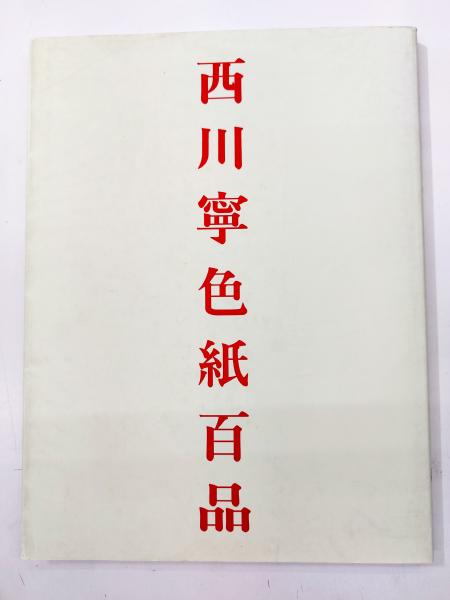 西川寧色紙百品